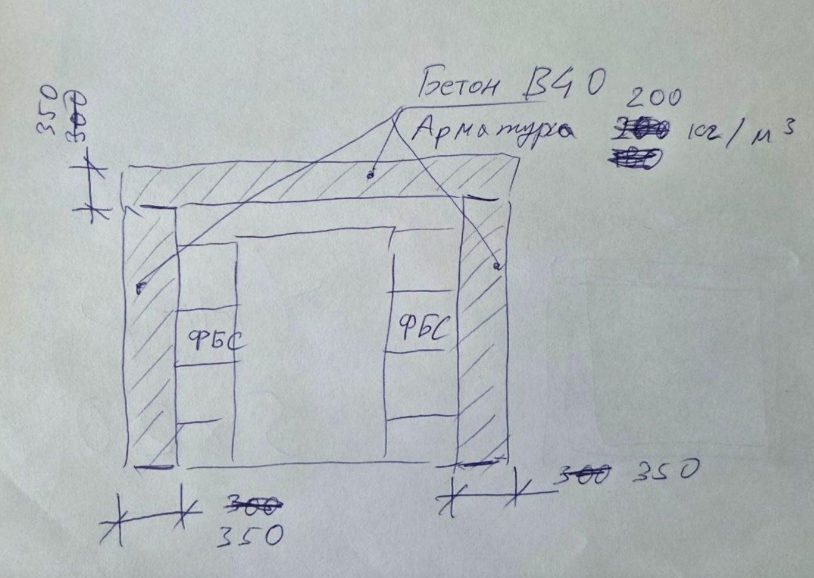 Бетон В40
200
Арматура 300 кг/м³
350
300
ФБС
ФБС
300 350
300
350